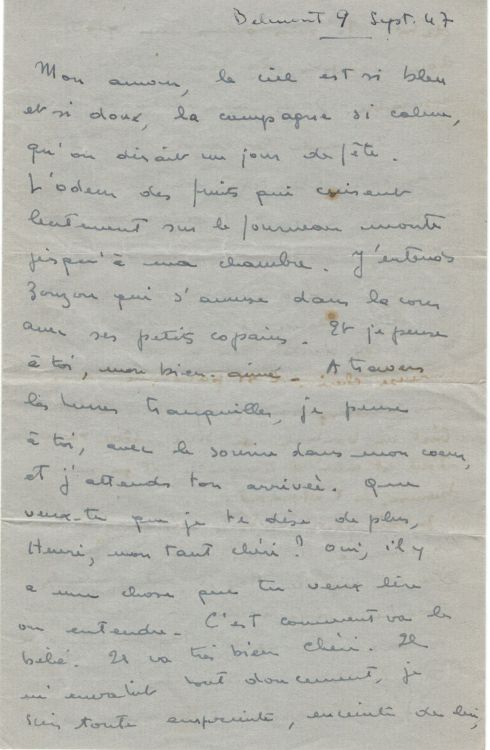 Belmont 9 Sept. 47
Mon amour, le ciel est si bleu
et si doux, la campagne si calme,
qu'on dirait un jour de fête.
L'odeur des fruits qui cuisent
lentement sur le fourneau monte
jusqu'à ma chambre. J'entends
Zouzou qui s'amuse dans la cour
avec ses petits copains. Et je pense
à toi, mon bien-aimé. A travers
les heures tranquilles, je pense
à toi, avec le sourire dans mon coeur,
et j'attends ton arrivée. Que
veux-tu que je te dise de plus,
Henri, mon tant chéri? Oui, il y
a une chose que tu veux lire
ou entendre. C'est comment va le
bébé. Il va très bien chéri. Il
m'envahit tout doucement, je
suis toute empreinte, enceinte de lui,